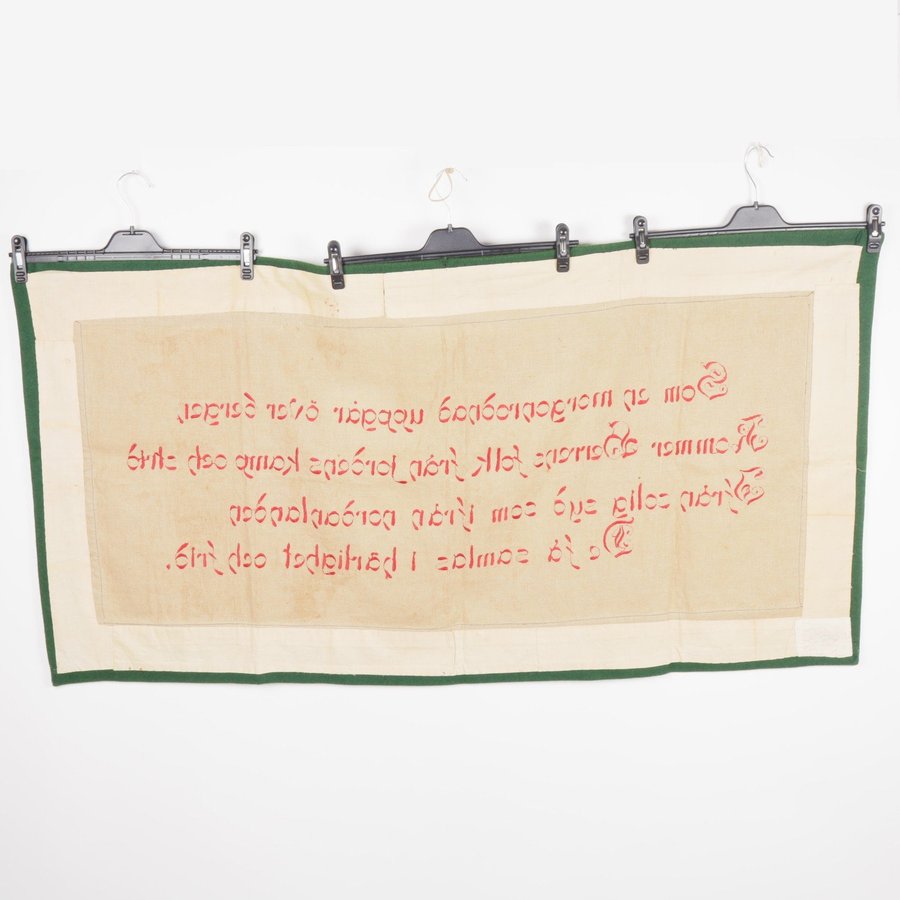 Som en morgonrodnad uppgår över berget,
Kommer Herrens folk från jordens kamp och strid
Från solig syd som från nordanlanden
De få samlas i härlighet och frid.